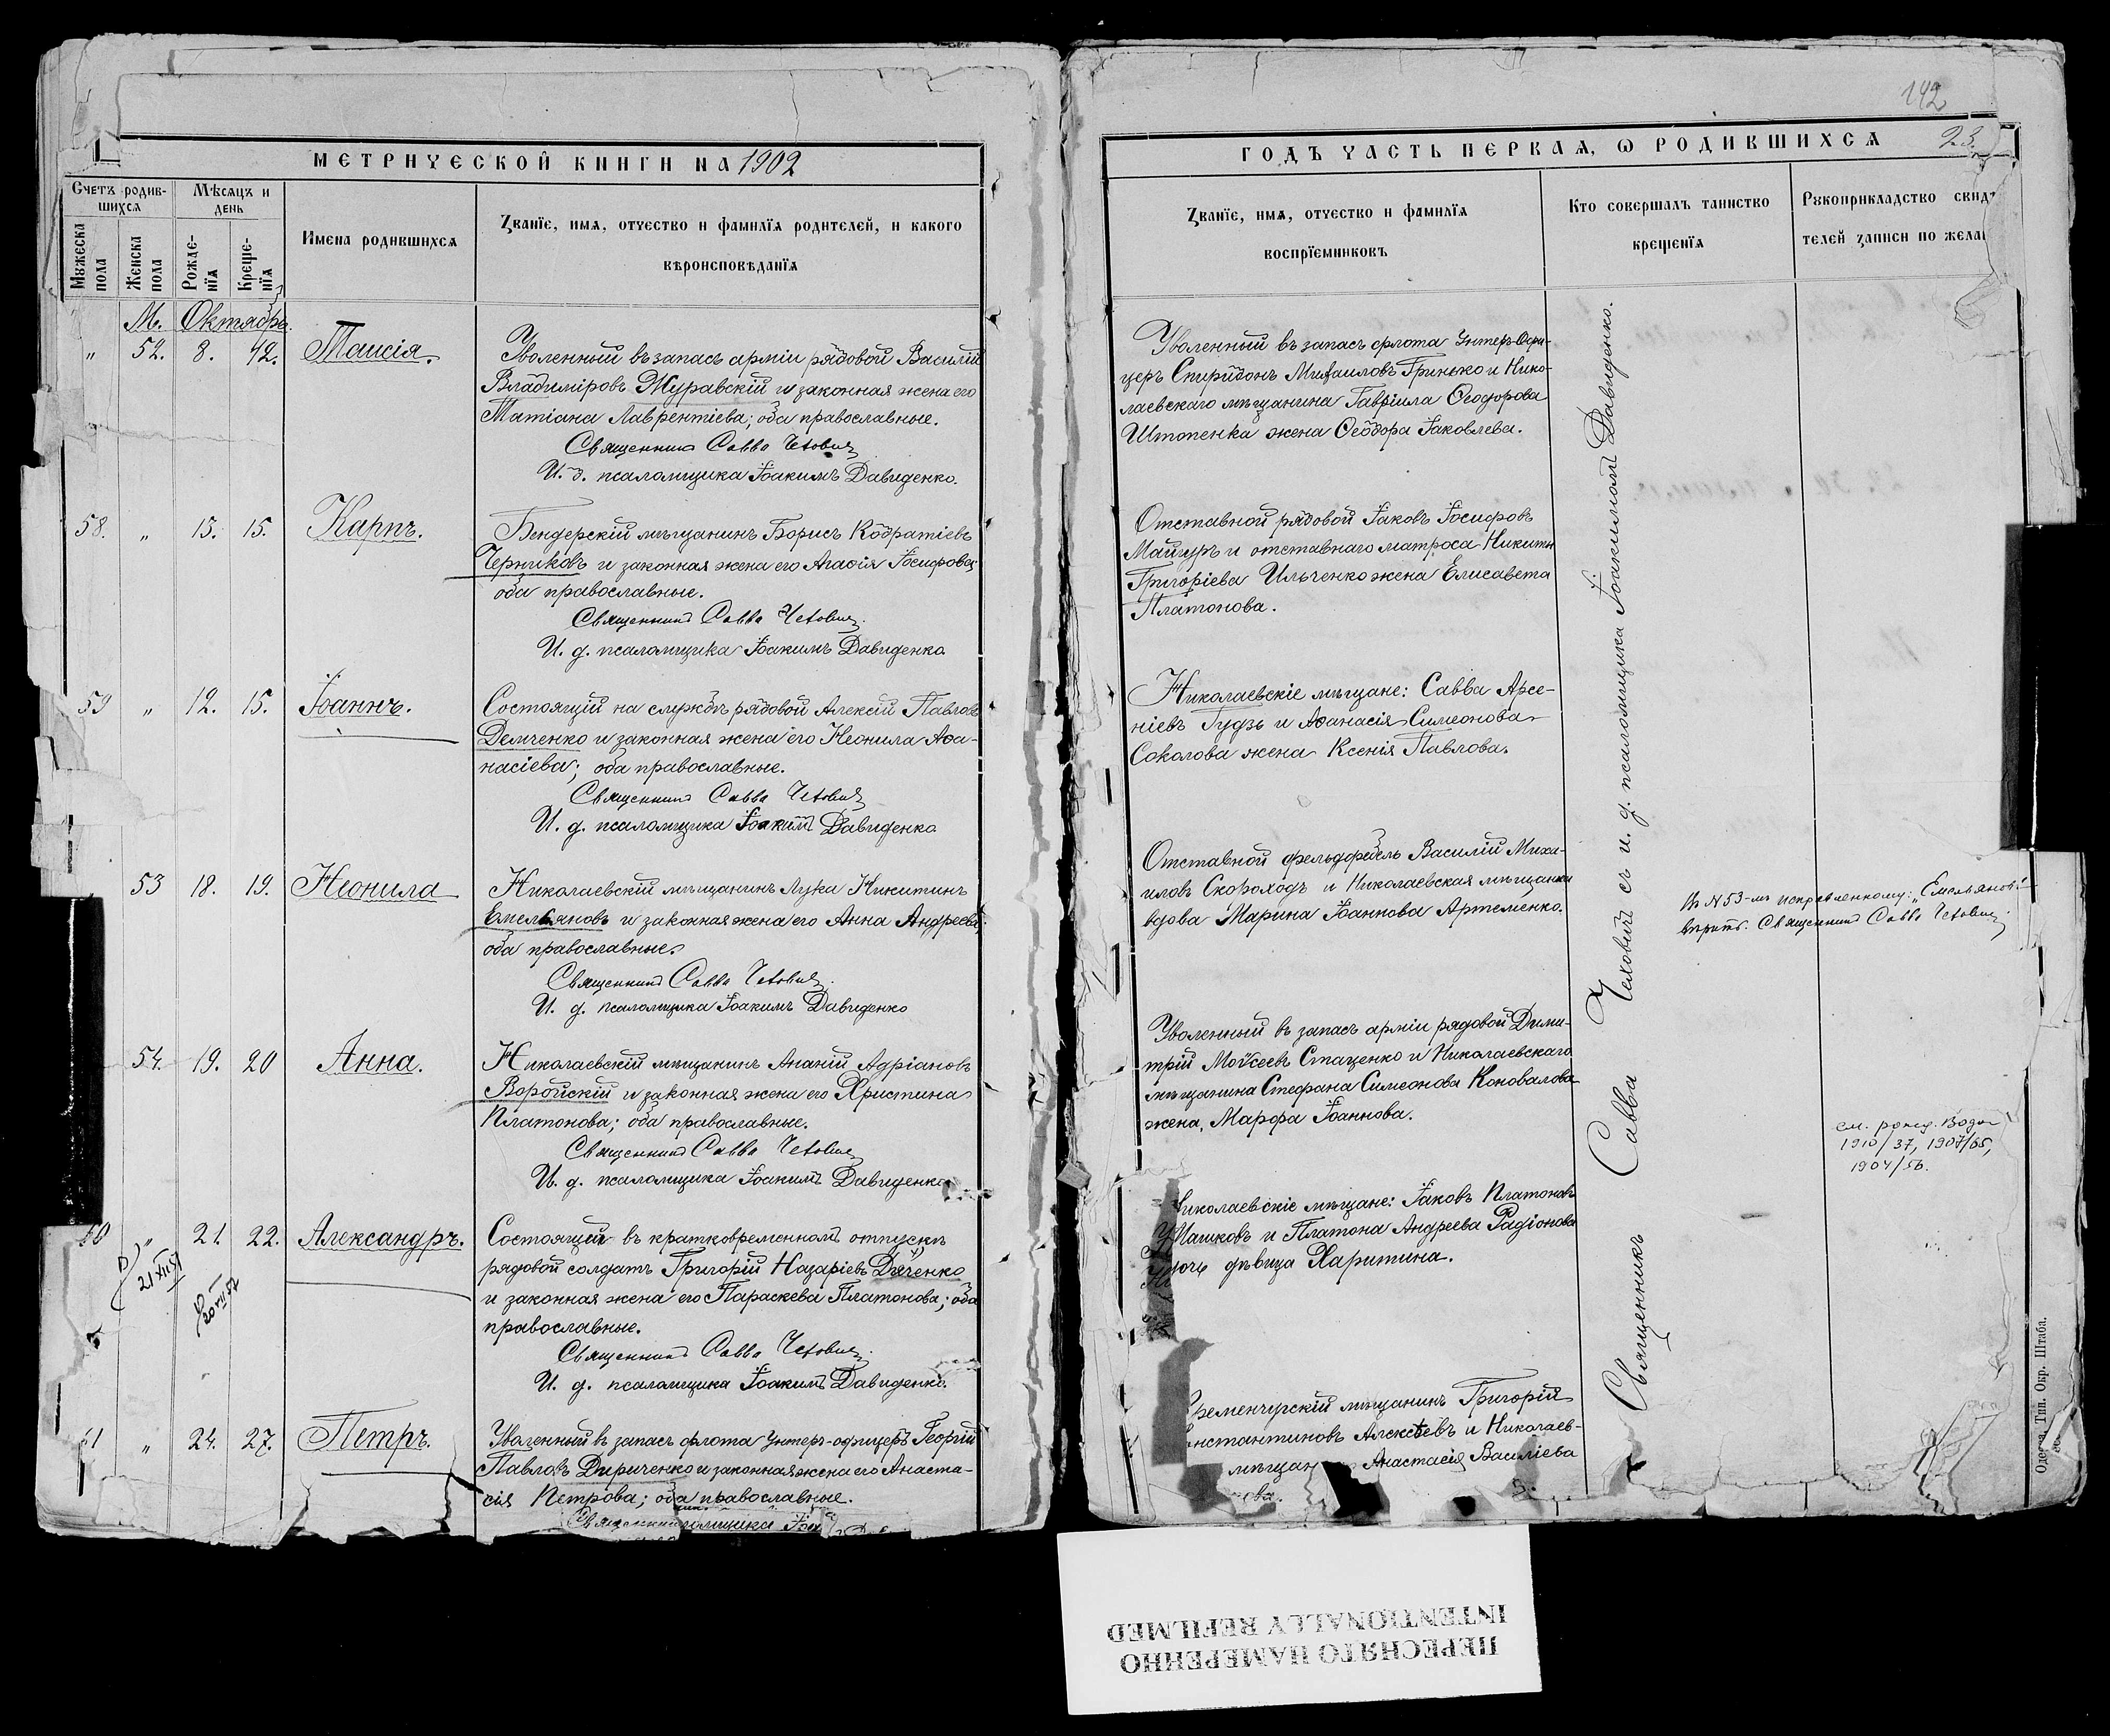 МЕТРИЧЕСКОЙ КНИГИ НА 1902
Счетъ родив-
шихся
Мѣсяцъ и
день
Мужеска
пола
Женска
пола
Рожде-
нїя
Креще-
нїя
Имена родившихся
Званїе, имя, отчество и фамилїя родителей, и какого
вѣроисповѣданїя
М. Октябрь.
" 52. 8. 12. Таисія.
Уволенный въ запасъ арміи рядовой Василій
Владиміровъ Журавскій и законная жена его
Татіана Лаврентіева; оба православные.
Священникъ Савва Чеховичъ
И. д. псаломщика Іоакимъ Давиденко.
58. " 13. 15. Карпъ.
Бендерскій мѣщанинъ Борисъ Кодратіевъ
Черниковъ и законная жена его Агаѳія Іосифова
оба православные.
Священникъ Савва Чеховичъ.
И. д. псаломщика Іоакимъ Давиденко
59 " 12. 15. Іоаннъ.
Состоящій на службѣ рядовой Алексій Павловъ
Демченко и законная жена его Неонила Аѳа-
насіева; оба православные.
Священникъ Савва Чеховичъ
И. д. псаломщика Іоакимъ Давиденко
" 53 18. 19. Неонила
Николаевскій мѣщанинъ Лука Никитинъ
Емельяновъ и законная жена его Анна Андреева;
оба православные.
Священникъ Савва Чеховичъ.
И. д. псаломщика Іоакимъ Давиденко
54. 19. 20 Анна.
Николаевскій мѣщанинъ Ананій Адріановъ
Воройскій и законная жена его Христина
Платонова; оба православные.
Священникъ Савва Чеховичъ
И. д. псаломщика Іоакимъ Давиденко
60 " 21. 22. Александръ.
Состоящій въ кратковременномъ отпуску
рядовой солдатъ Григорій Назаріевъ Дяченко
и законная жена его Параскева Платонова; оба
православные.
Священникъ Савва Чеховичъ.
И. д. псаломщика Іоакимъ Давиденко.
61 " 24. 27. Петръ.
Уволенный въ запасъ флота унтеръ-офицеръ Георгій
Павловъ Дириченко и законная жена его Анаста-
сія Петрова; оба православные.
142
23
ГОДЪ ЧАСТЬ ПЕРВАЯ, Ѡ РОДИВШИХСЯ
Званїе, имя, отчество и фамилїя
воспрїемниковъ
Кто совершалъ таинство
крещенїя
Рукоприкладство свидѣ
телей записи по жела
Уволенный въ запасъ флота Унтеръ-Офи-
церъ Спиридонъ Михаиловъ Гринько и Нико-
лаевскаго мѣщанина Гавріила Ѳеодорова
Штопенка жена Ѳеодора Іаковлева.
Отставной рядовой Іаковъ Іосифовъ
Майгуръ и отставнаго матроса Никиты
Григоріева Ильченко жена Елисавета
Платонова.
Николаевскіе мѣщане: Савва Арсе-
ніевъ Гудзь и Аѳанасія Симеонова
Соколова жена Ксенія Павлова.
Отставной фельдфебель Василій Миха-
иловъ Скороходъ и Николаевская мѣщанка
вдова Марина Іоаннова Артеменко.
Уволенный въ запасъ арміи рядовой Дими-
трій Моѵсеевъ Стаценко и Николаевскаго
мѣщанина Стефана Симеонова Коновалова
жена, Марфа Іоаннова.
иколаевскіе мѣщане: Іаковъ Платоновъ
Машковъ и Платона Андреева Радіонова
дочь дѣвица Харитина.
ременчугскій мѣщанинъ Григорій
нстантиновъ Алексѣевъ и Николаев-
мѣщан Анастасія Василіева
ова.
Священникъ Савва Чеховичъ съ и. д. псаломщика Іоакимомъ Давиденко.
Въ №53-мъ исправленному: "Емельяновъ"
вѣрить. Священникъ Савва Чеховичъ.
1910/37, 1907/65,
1904/56.
21 XII 51
20 VII 52
Одесса, Тип. Окр. Штаба.
ПЕРЕСНЯТО НАМЕРЕННО
INTENTIONALLY REFILMED